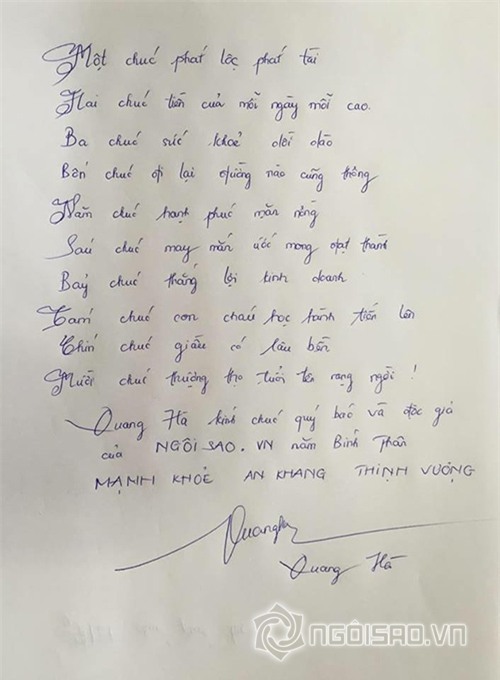 Một chúc phát lộc phát tài
Hai chúc tiền của mỗi ngày mỗi cao.
Ba chúc sức khoẻ dồi dào
Bốn chúc đi lại đường nào cũng thông
Năm chúc hạnh phúc mặn nồng
Sáu chúc may mắn ước mong đạt thành
Bảy chúc thắng lợi kinh doanh
Tám chúc con cháu học hành tiến lên
Chín chúc giầu có lâu bền
Mười chúc thượng thọ tuổi tên rạng ngời !
Quang Hà kính chúc quý báo và độc giả
của NGÔISAO.VN năm Bính Thân
MẠNH KHOẺ AN KHANG THỊNH VƯỢNG
Quangha
Quang Hà
NGÔISAO.VN